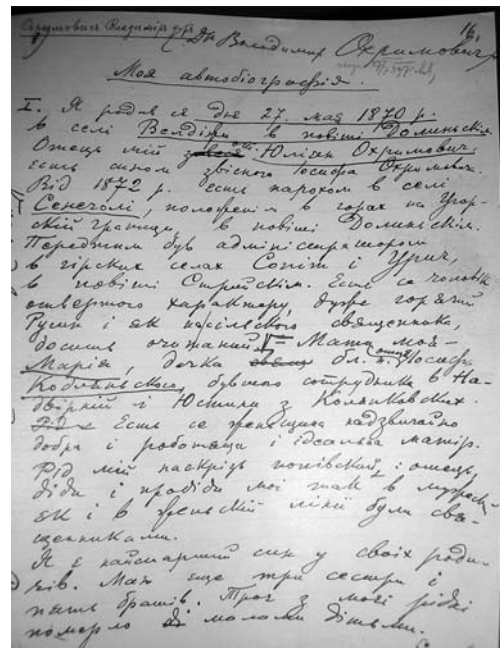 Охримович Володимир
16.
Др Володимир Охримович
Моя автобіографія.
I. Я родив ся дня 27. мая 1870 р.
в селі Велдіжи в повіті Долиньскім.
Отець мій Юліян Охримович,
єсть сином звісного Іосифа Охримовича.
Від 1872 р. єсть парохом в селі
Сенечолі, положенім в горах на Угор-
скій границі, в повіті Долиньскім.
Передтим був адміністратором
в гірских селах Сопіт і Урич,
в повіті Стрийскім. Єсть се чоловік
отвертого характеру, дуже горячий
Русин і як на сільского священника,
досить очитаний. Мати моя –
Марія, дочка бл. п. отця Іосифа
Кобляньского, бувшого сотрудника в На-
двірній і Юстини з
Єсть се женщина надзвичайно
добра і роботяща і ідеальна матір.
Рід мій наскрізь попівский; отець,
діди і прадіди мої так в мужескій
як і в женьскій лінії були свя-
щенниками.
Я є найстарший син у своїх роди-
чів. Маю еще три сестри і
пять братів. Троє з моєї рідні
померло малими дітьми.